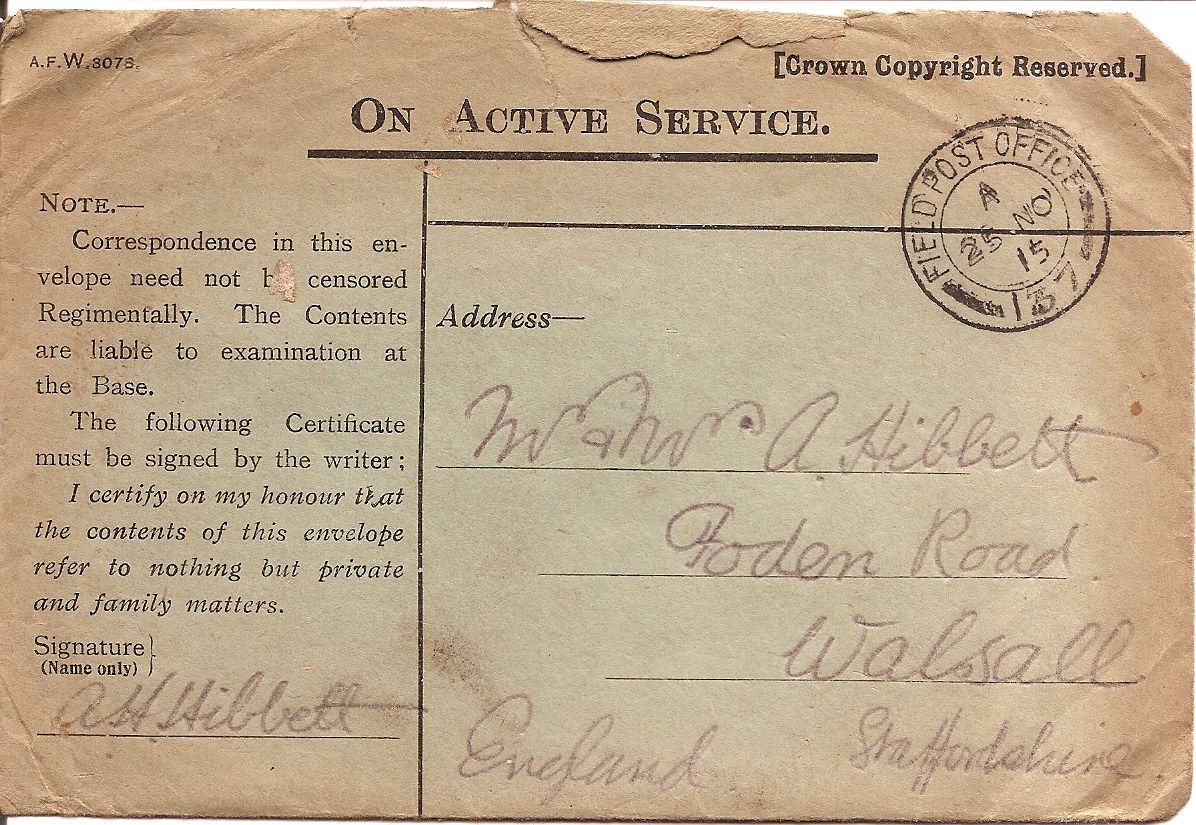 A.F.W.3076.
[Crown Copyright Reserved.]
ON ACTIVE SERVICE.
FIELD POST OFFICE
A
25 NO
15
137
NOTE.—
Correspondence in this en-
velope need not be censored
Regimentally. The Contents
are liable to examination at
the Base.
The following Certificate
must be signed by the writer;
I certify on my honour that
the contents of this envelope
refer to nothing but private
and family matters.
Signature }
(Name only)
A H Hibbett
Address—
Mr & Mrs A Hibbett
Foden Road.
Walsall
Staffordshire.
England